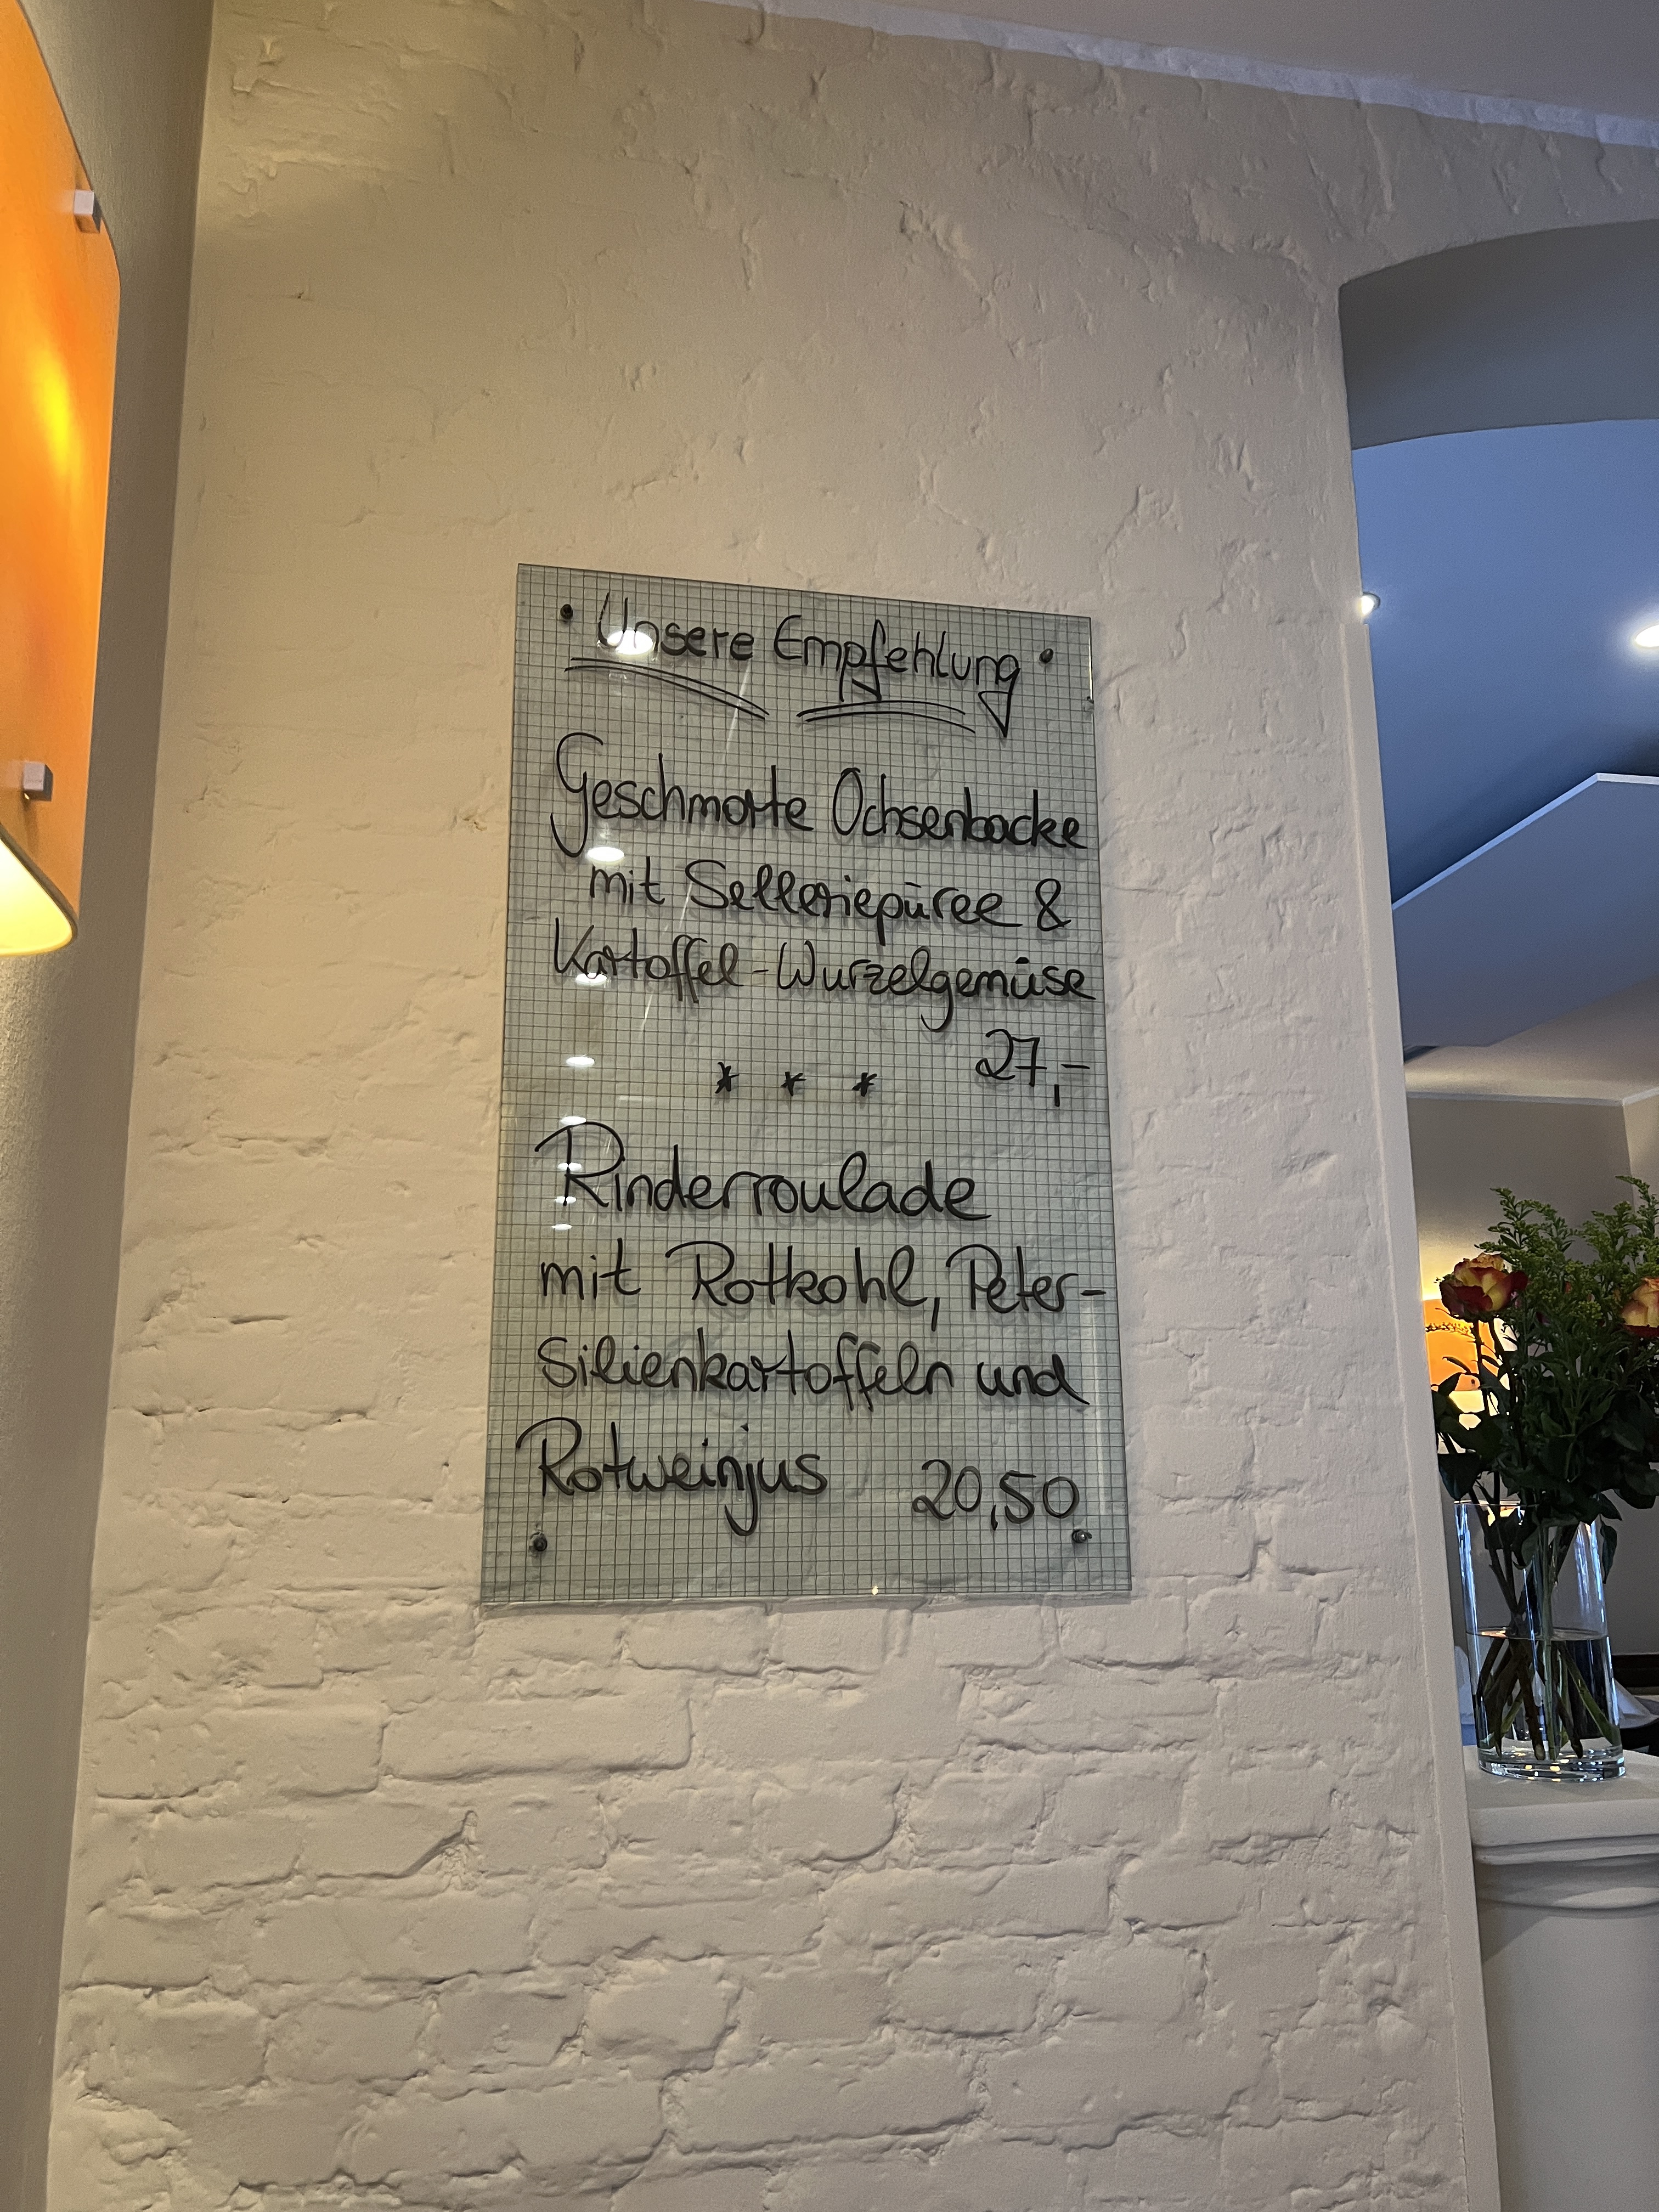 • Unsere Empfehlung •
Geschmorte Ochsenbacke
mit Selleriepüree &
Kartoffel-Wurzelgemüse
27,-
* * *
Rinderroulade
mit Rotkohl, Peter-
silienkartoffeln und
Rotweinjus 20,50